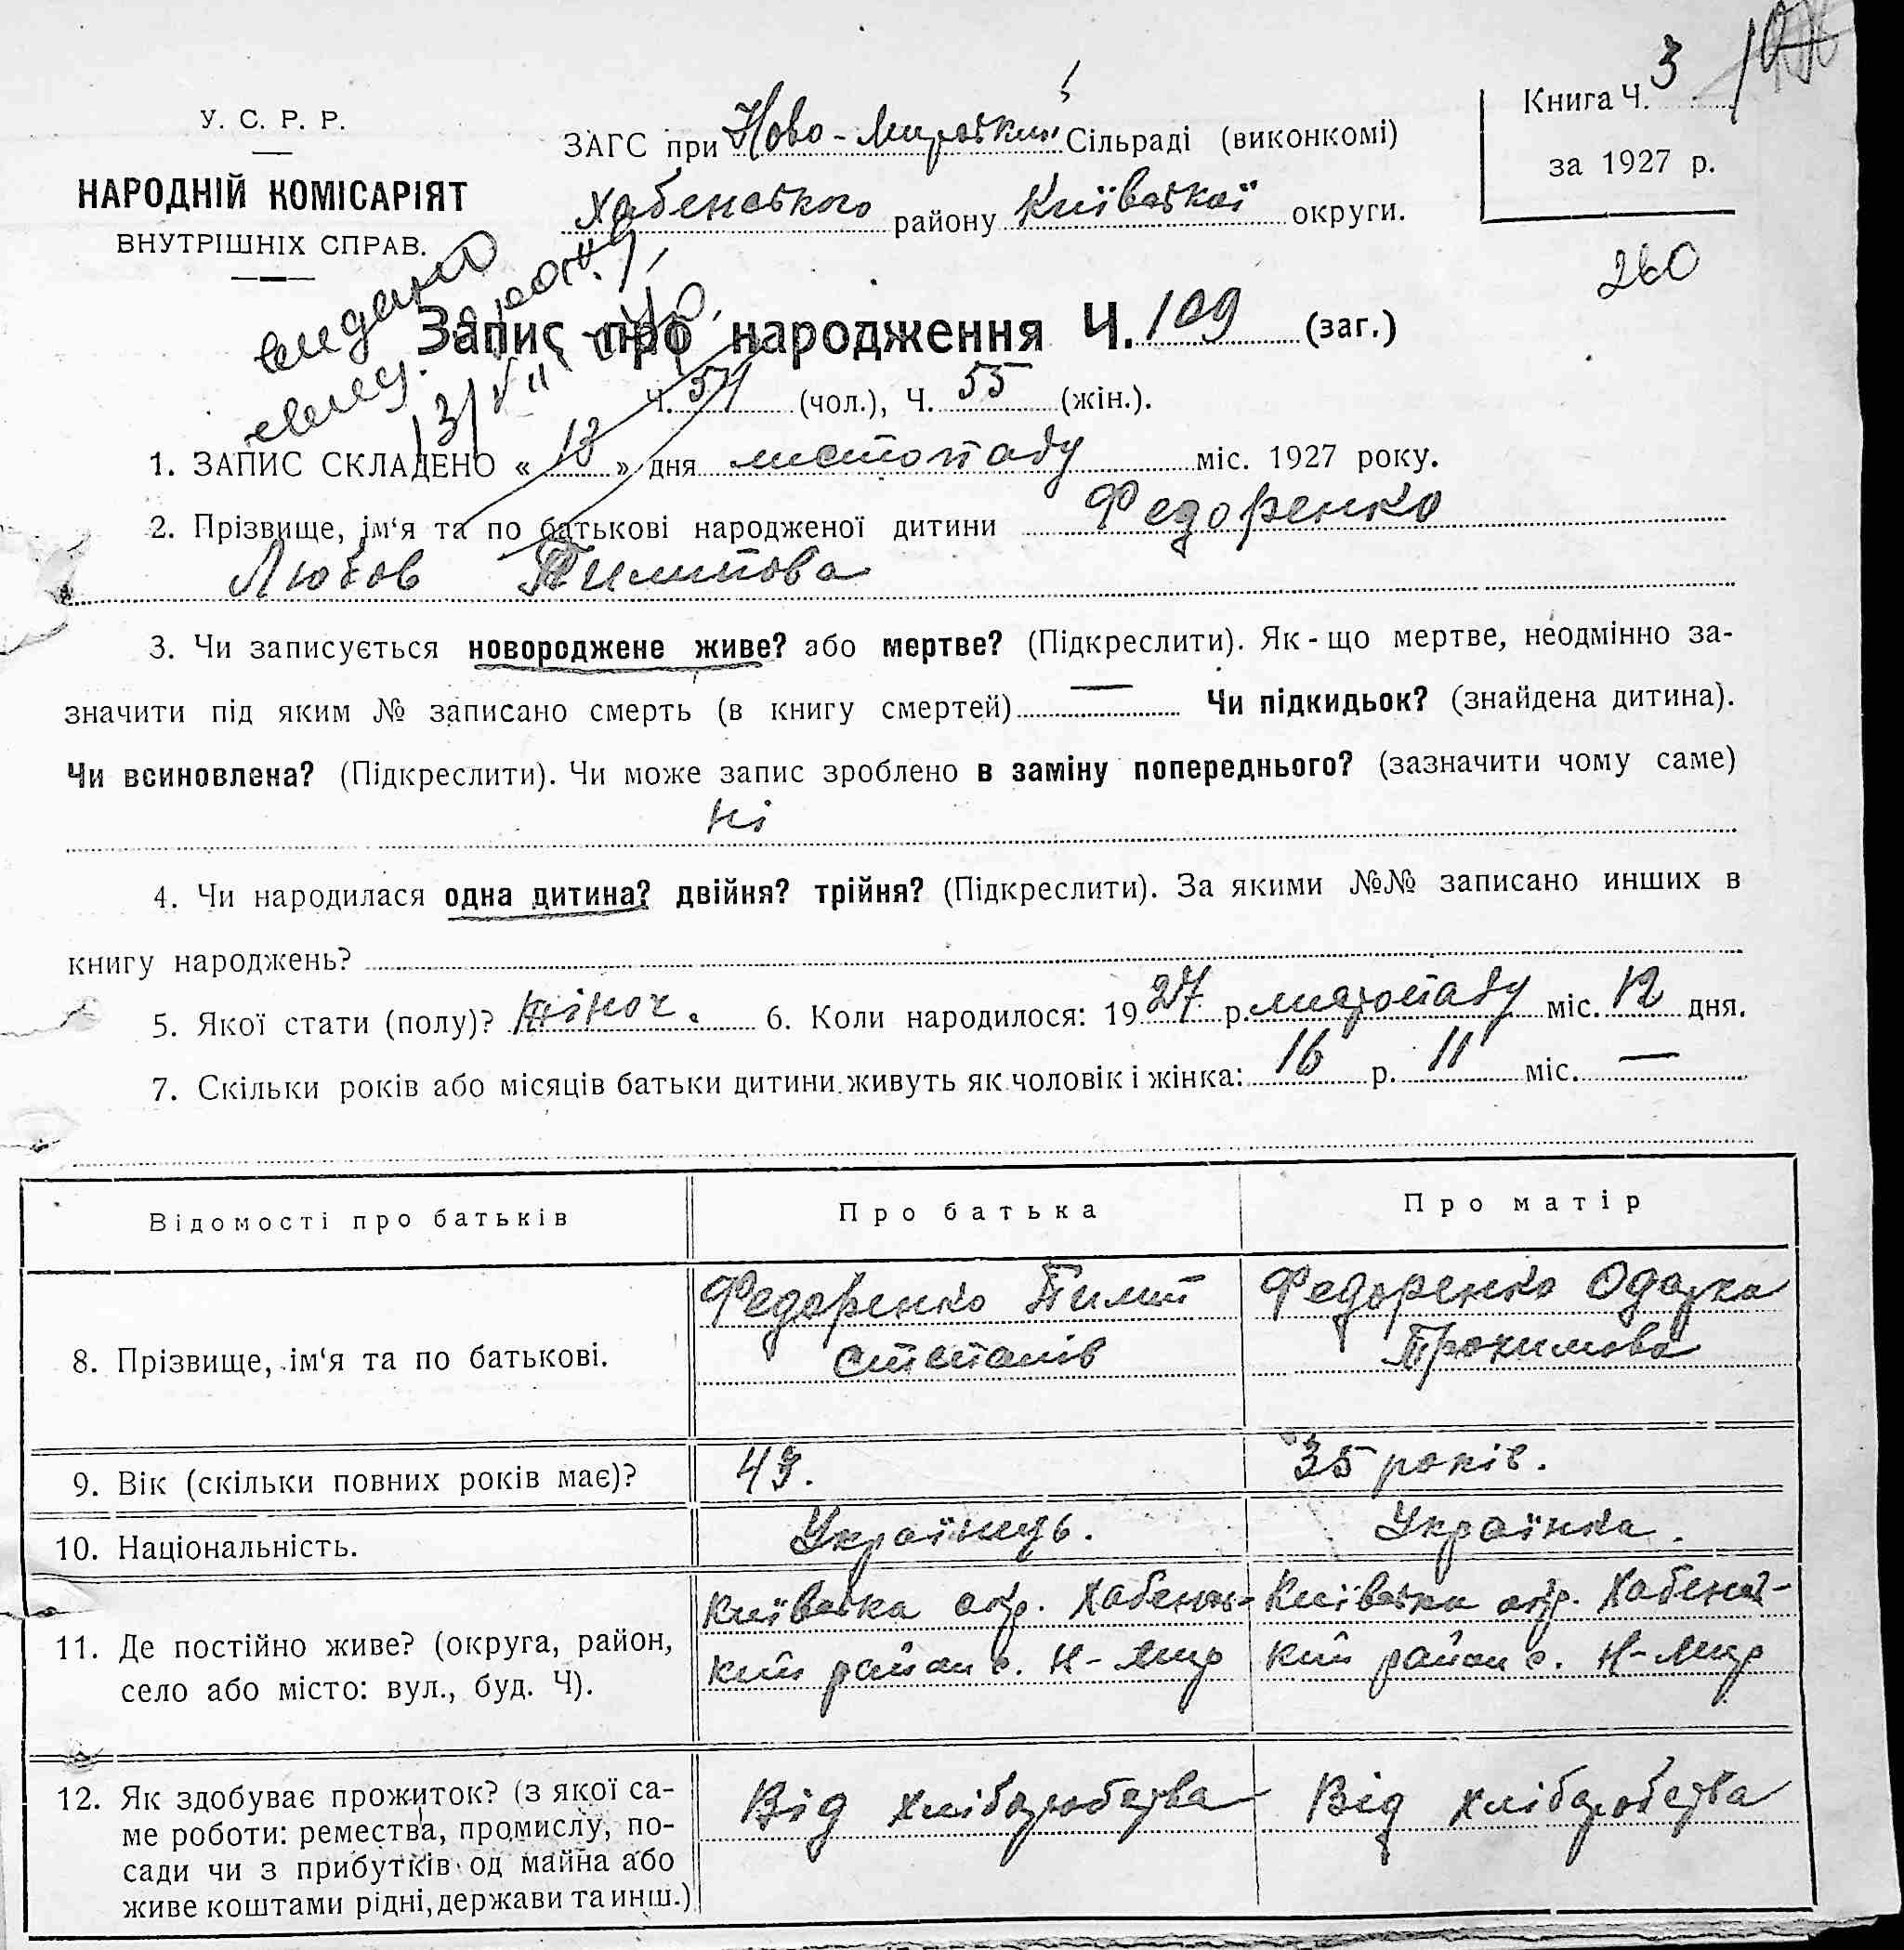 У. С. Р. Р.
НАРОДНІЙ КОМІСАРІЯТ
ВНУТРІШНІХ СПРАВ.
ЗАГС при Ново-Мирський Сільраді (виконкомі)
Хабенського району Київської округи.
Книга Ч. 3
за 1927 р.
260
видано
Запис про народження Ч. 109 (заг.)
Ч. 54 (чол.), Ч. 55 (жін.).
1. ЗАПИС СКЛАДЕНО « 13 » дня листопаду міс. 1927 року.
2. Прізвище, ім‘я та по батькові народженої дитини Федоренко
Любов Пилипова
3. Чи записується новороджене живе? або мертве? (Підкреслити). Як-що мертве, неодмінно за-
значити під яким № записано смерть (в книгу смертей) — Чи підкидьок? (знайдена дитина).
Чи всиновлена? (Підкреслити). Чи може запис зроблено в заміну попереднього? (зазначити чому саме)
ні
4. Чи народилася одна дитина? двійня? трійня? (Підкреслити). За якими №№ записано инших в
книгу народжень?
5. Якої стати (полу)? жіноч. 6. Коли народилося: 1927 р. листопаду міс. 12 дня.
7. Скільки років або місяців батьки дитини живуть як чоловік і жінка: 16 р. 11 міс. —
Відомості про батьків Про батька Про матір
8. Прізвище, ім‘я та по батькові.
Федоренко Пилип
Степанів
Федоренко Одарка
Трохимова
9. Вік (скільки повних років має)? 49. 35 років.
10. Національність. Українець. Українка.
11. Де постійно живе? (округа, район,
село або місто: вул., буд. Ч).
Київська окр. Хабенсь-
кий район с. Н-Мир
Київська окр. Хабенсь-
кий район с. Н-Мир
12. Як здобуває прожиток? (з якої са-
ме роботи: ремества, промислу, по-
сади чи з прибутків од майна або
живе коштами рідні, держави та инш.)
Від хліборобства
Від хліборобства